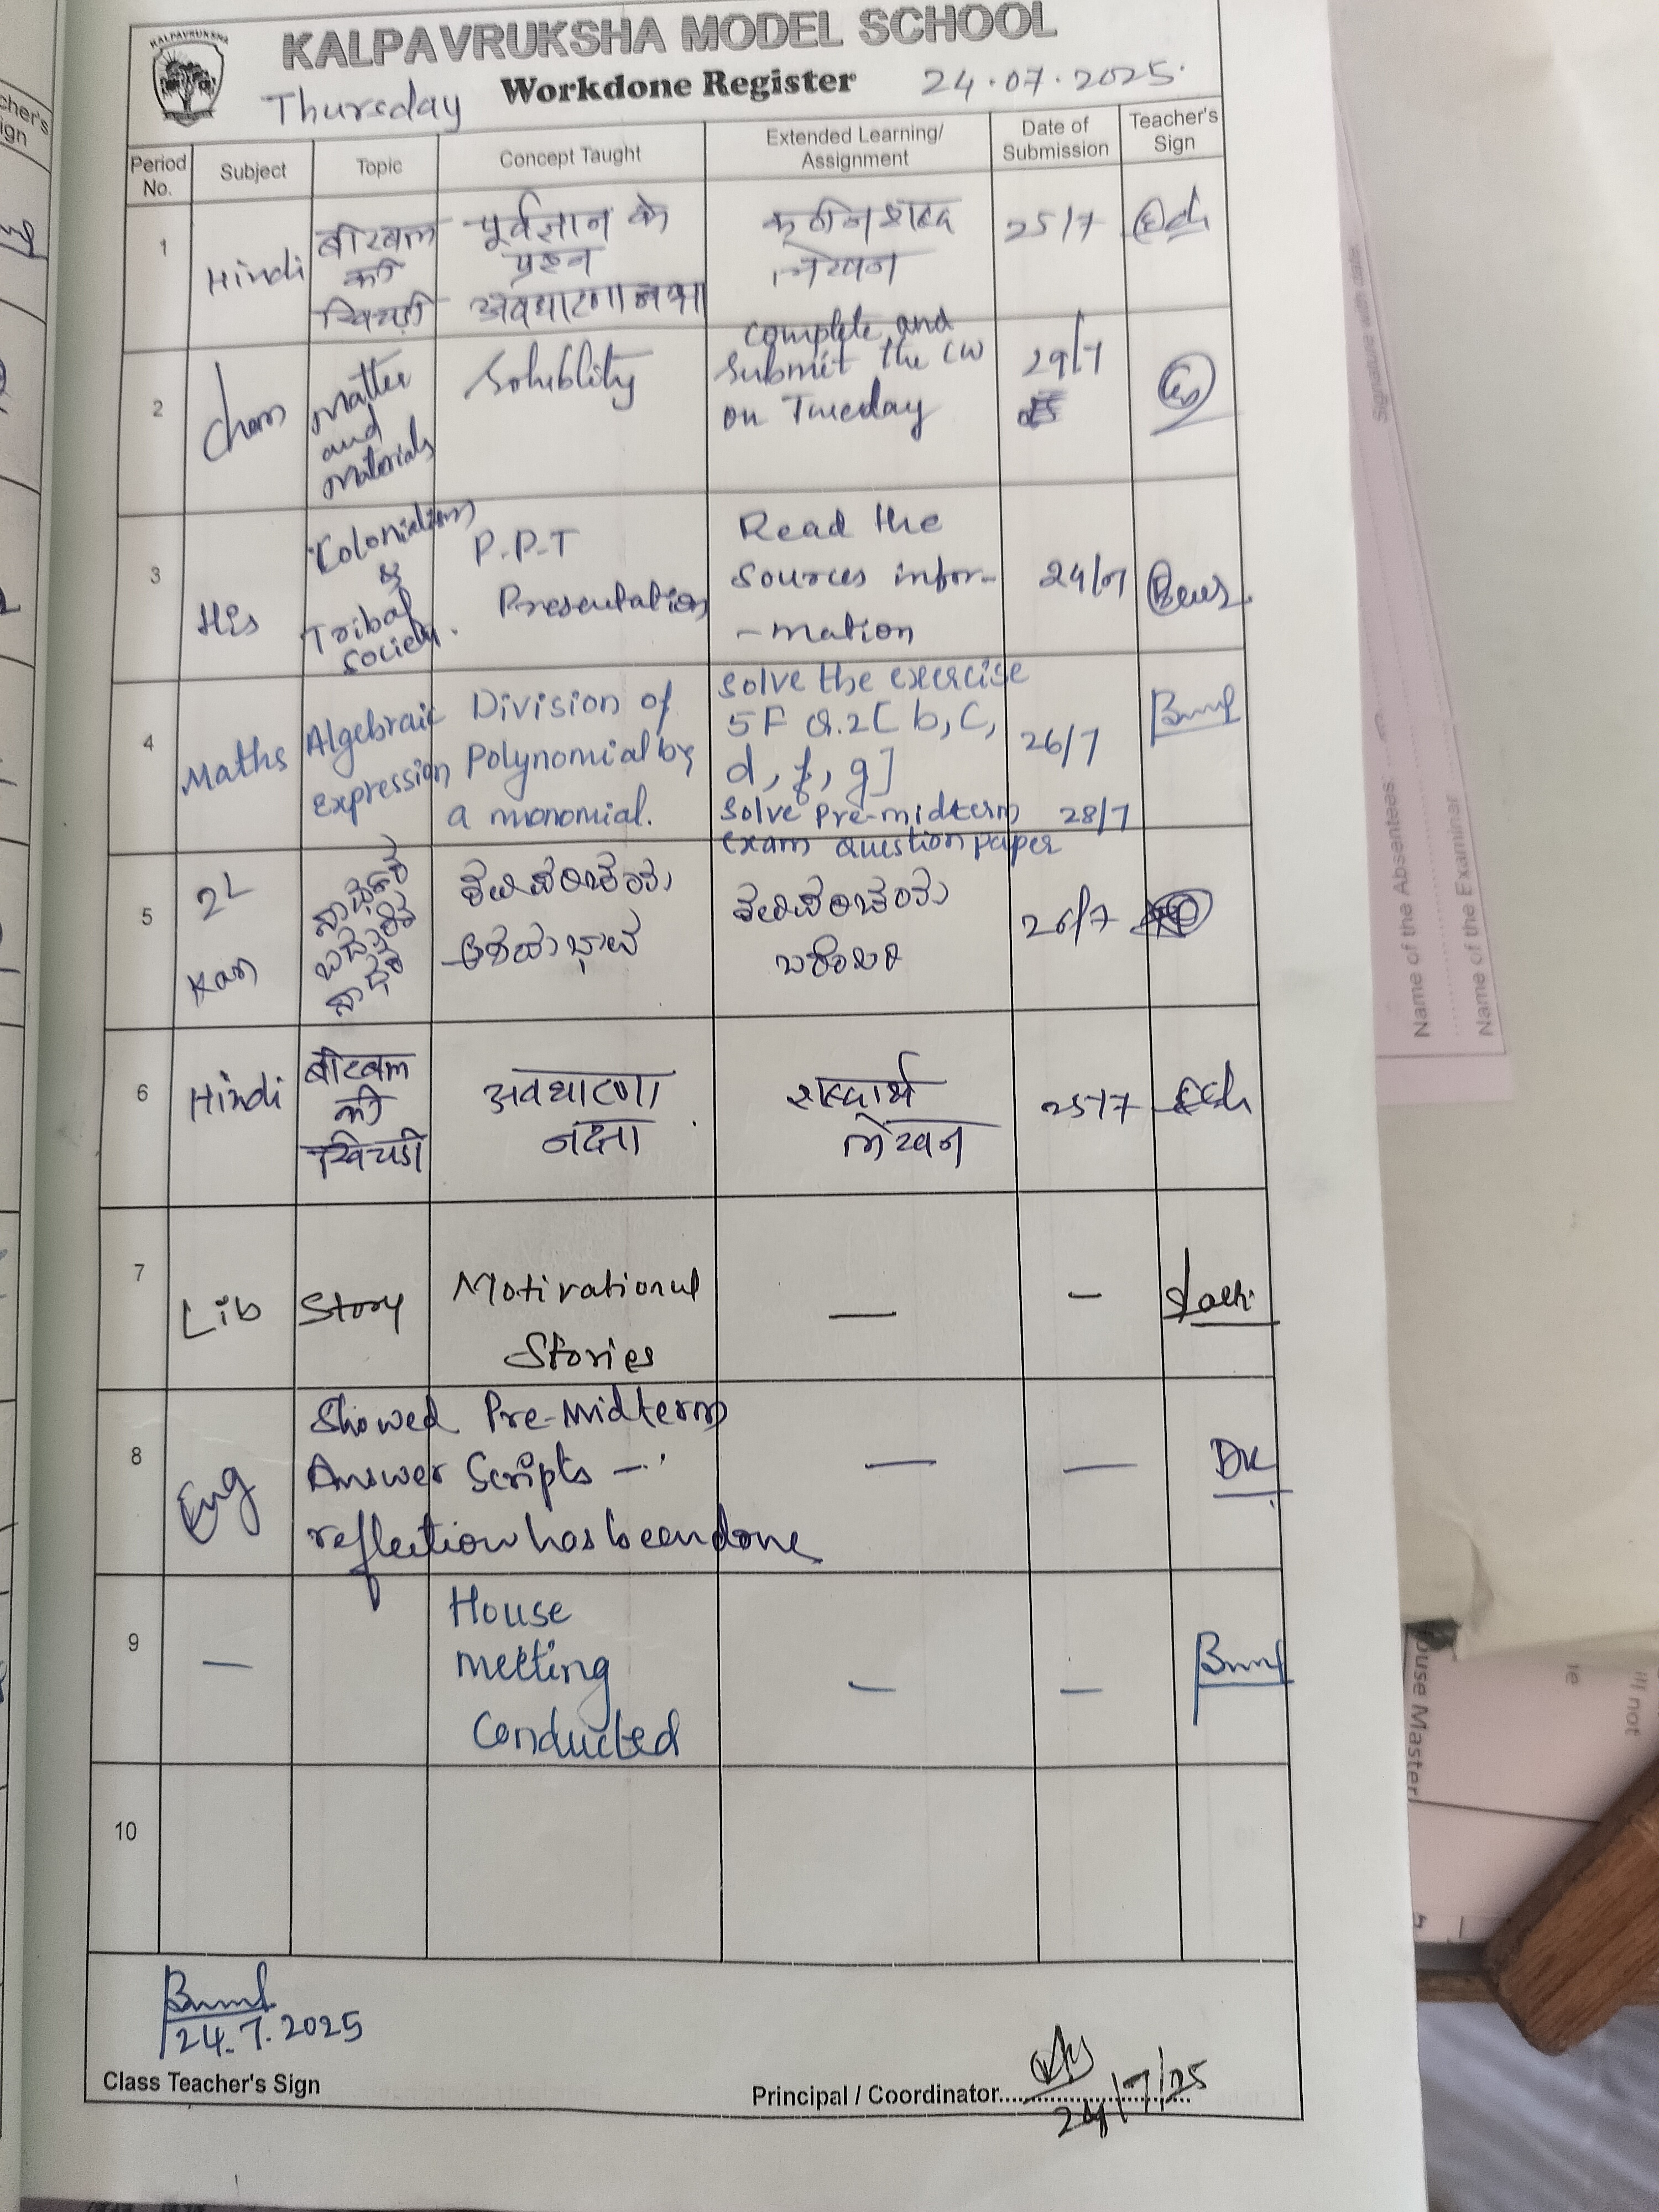 KALPAVRUKSHA
KALPAVRUKSHA MODEL SCHOOL
Thursday Workdone Register 24.07.2025.
Period No. Subject Topic Concept Taught Extended Learning/ Assignment Date of Submission Teacher's Sign
1 Hindi बीरबल की खिचड़ी पूर्वज्ञान के प्रश्न अवधारणा नक्शा कठीन शब्द लेखन 25/7
2 Chem Matter and Materials Solublity Complete and Submit the CW on Tuesday 29/7
3 His Colonialism & Tribal Society. P.P.T Presentation Read the Sources infor- -mation 24/07
4 Maths Algebraic expression Division of Polynomial by a monomial. Solve the exercise 5F Q.2[ b, c, d, f, g] 26/7
Solve Pre-midterm exam question paper 28/7
5 2L Kan 26/7
6 Hindi बीरबल की खिचडी अवधारणा नक्शा शब्दार्थ लेखन 25/7
7 Lib Story Motivational Stories — —
8 Eng Showed Pre-Midterm Answer Scripts — reflection has been done — —
9 — House meeting Conducted — —
10
24.7.2025
Class Teacher's Sign
Principal / Coordinator
24/7/25
cher's
ign
Signature with date
Name of the Absentees:
Name of the Examiner
ouse Master
ill not